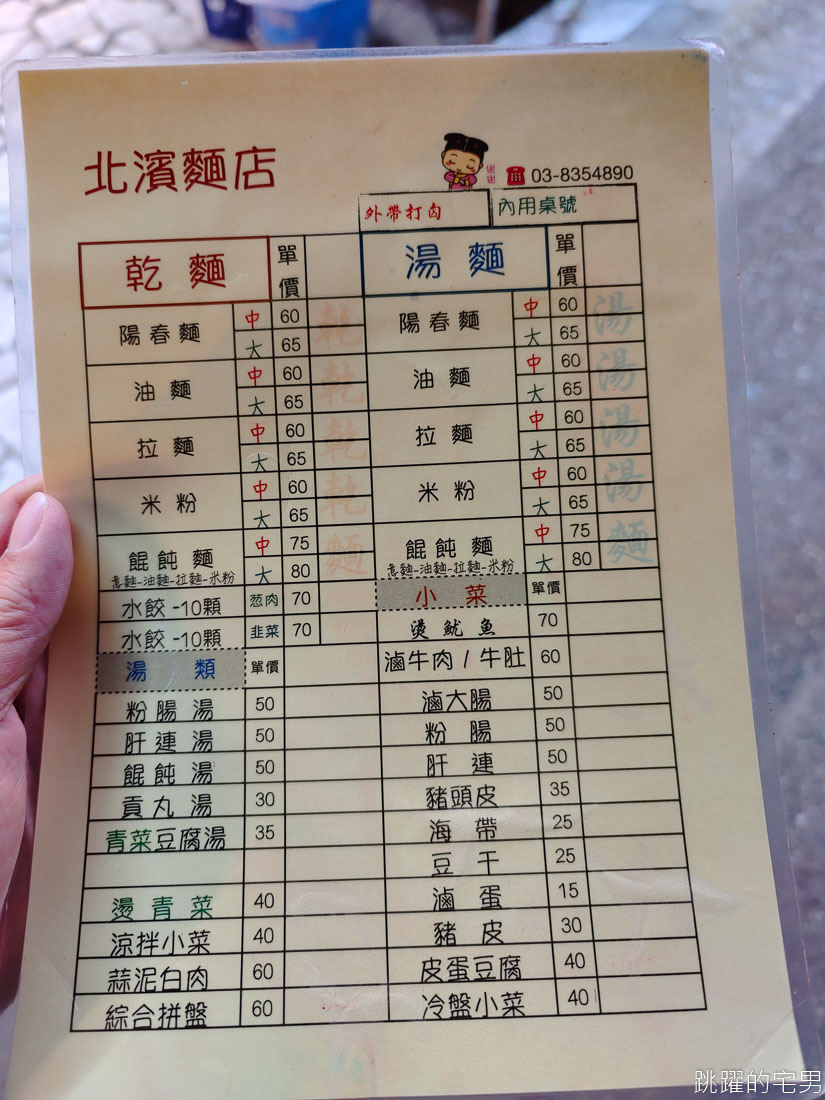 北濱麵店
謝謝
☎ 03-8354890
外帶打勾
內用桌號
乾麵 單價
陽春麵 中 60
大 65
油麵 中 60
大 65
拉麵 中 60
大 65
米粉 中 60
大 65
餛飩麵 中 75
意麵-油麵-拉麵-米粉 大 80
水餃-10顆 蔥肉 70
水餃-10顆 韭菜 70
乾乾乾乾麵
湯類 單價
粉腸湯 50
肝連湯 50
餛飩湯 50
貢丸湯 30
青菜豆腐湯 35
燙青菜 40
涼拌小菜 40
蒜泥白肉 60
綜合拼盤 60
湯麵 單價
陽春麵 中 60
大 65
油麵 中 60
大 65
拉麵 中 60
大 65
米粉 中 60
大 65
餛飩麵 中 75
意麵-油麵-拉麵-米粉 大 80
湯湯湯湯麵
小菜 單價
燙魷魚 70
滷牛肉/牛肚 60
滷大腸 50
粉腸 50
肝連 50
豬頭皮 35
海帶 25
豆干 25
滷蛋 15
豬皮 30
皮蛋豆腐 40
冷盤小菜 40
跳躍的宅男